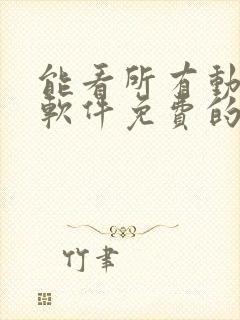 能看所有動
軟件免費的
竹聿